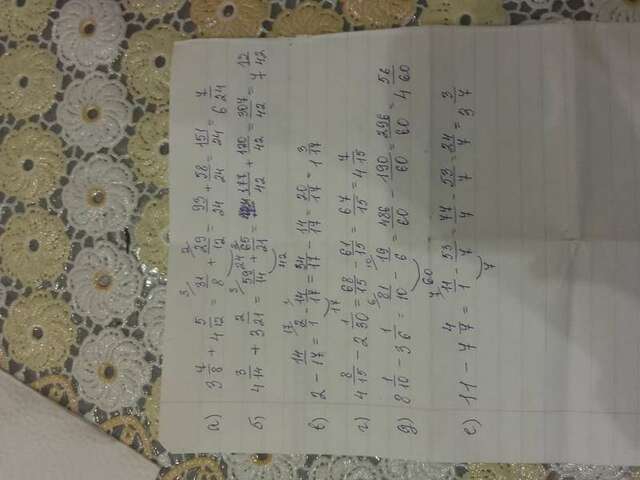 а) 3 7/8 + 4 5/12 = 31/8 + 29/12 = 93/24 + 58/24 = 151/24 = 6 7/24
б) 4 3/14 + 3 2/21 = 59/14 + 65/21 = 177/42 + 130/42 = 307/42 = 7 12/42
в) 2 - 14/17 = 2/1 - 14/17 = 34/17 - 14/17 = 20/17 = 1 3/17
г) 4 8/15 - 2 1/30 = 68/15 - 61/15 = 67/15 = 4 7/15
д) 8 1/10 - 3 1/6 = 81/10 - 19/6 = 486/60 - 190/60 = 296/60 = 4 56/60
е) 11 - 7 4/7 = 11/1 - 53/7 = 77/7 - 53/7 = 24/7 = 3 3/7